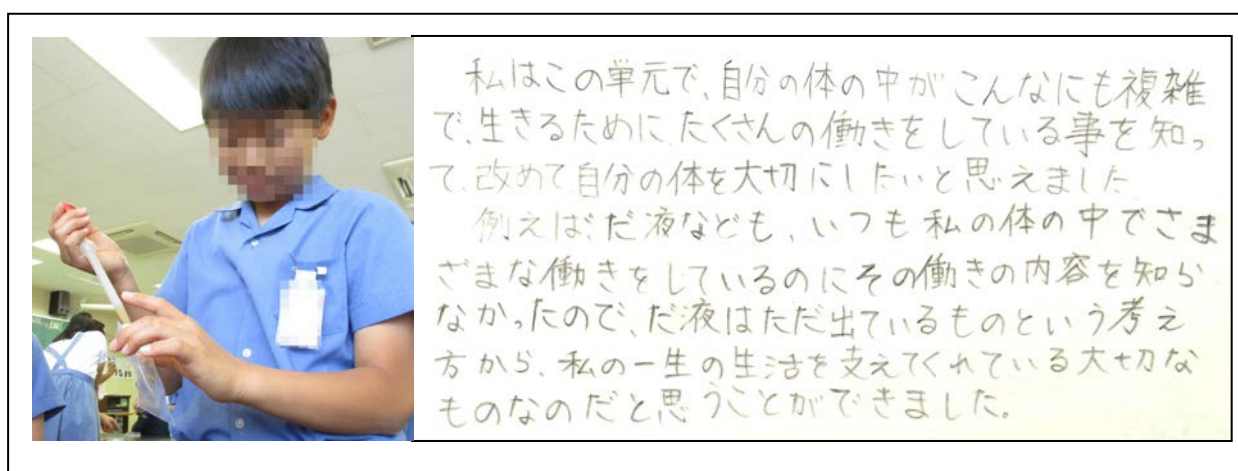 私はこの単元で、自分の体の中がこんなにも複雑
で、生きるために、たくさんの働きをしている事を知っ
て、改めて自分の体を大切にしたいと思えました
例えば、だ液なども、いつも私の体の中でさま
ざまな働きをしているのにその働きの内容を知ら
なかったので、だ液はただ出ているものという考え
方から、私の一生の生活を支えてくれている大切な
ものなのだと思うことができました。